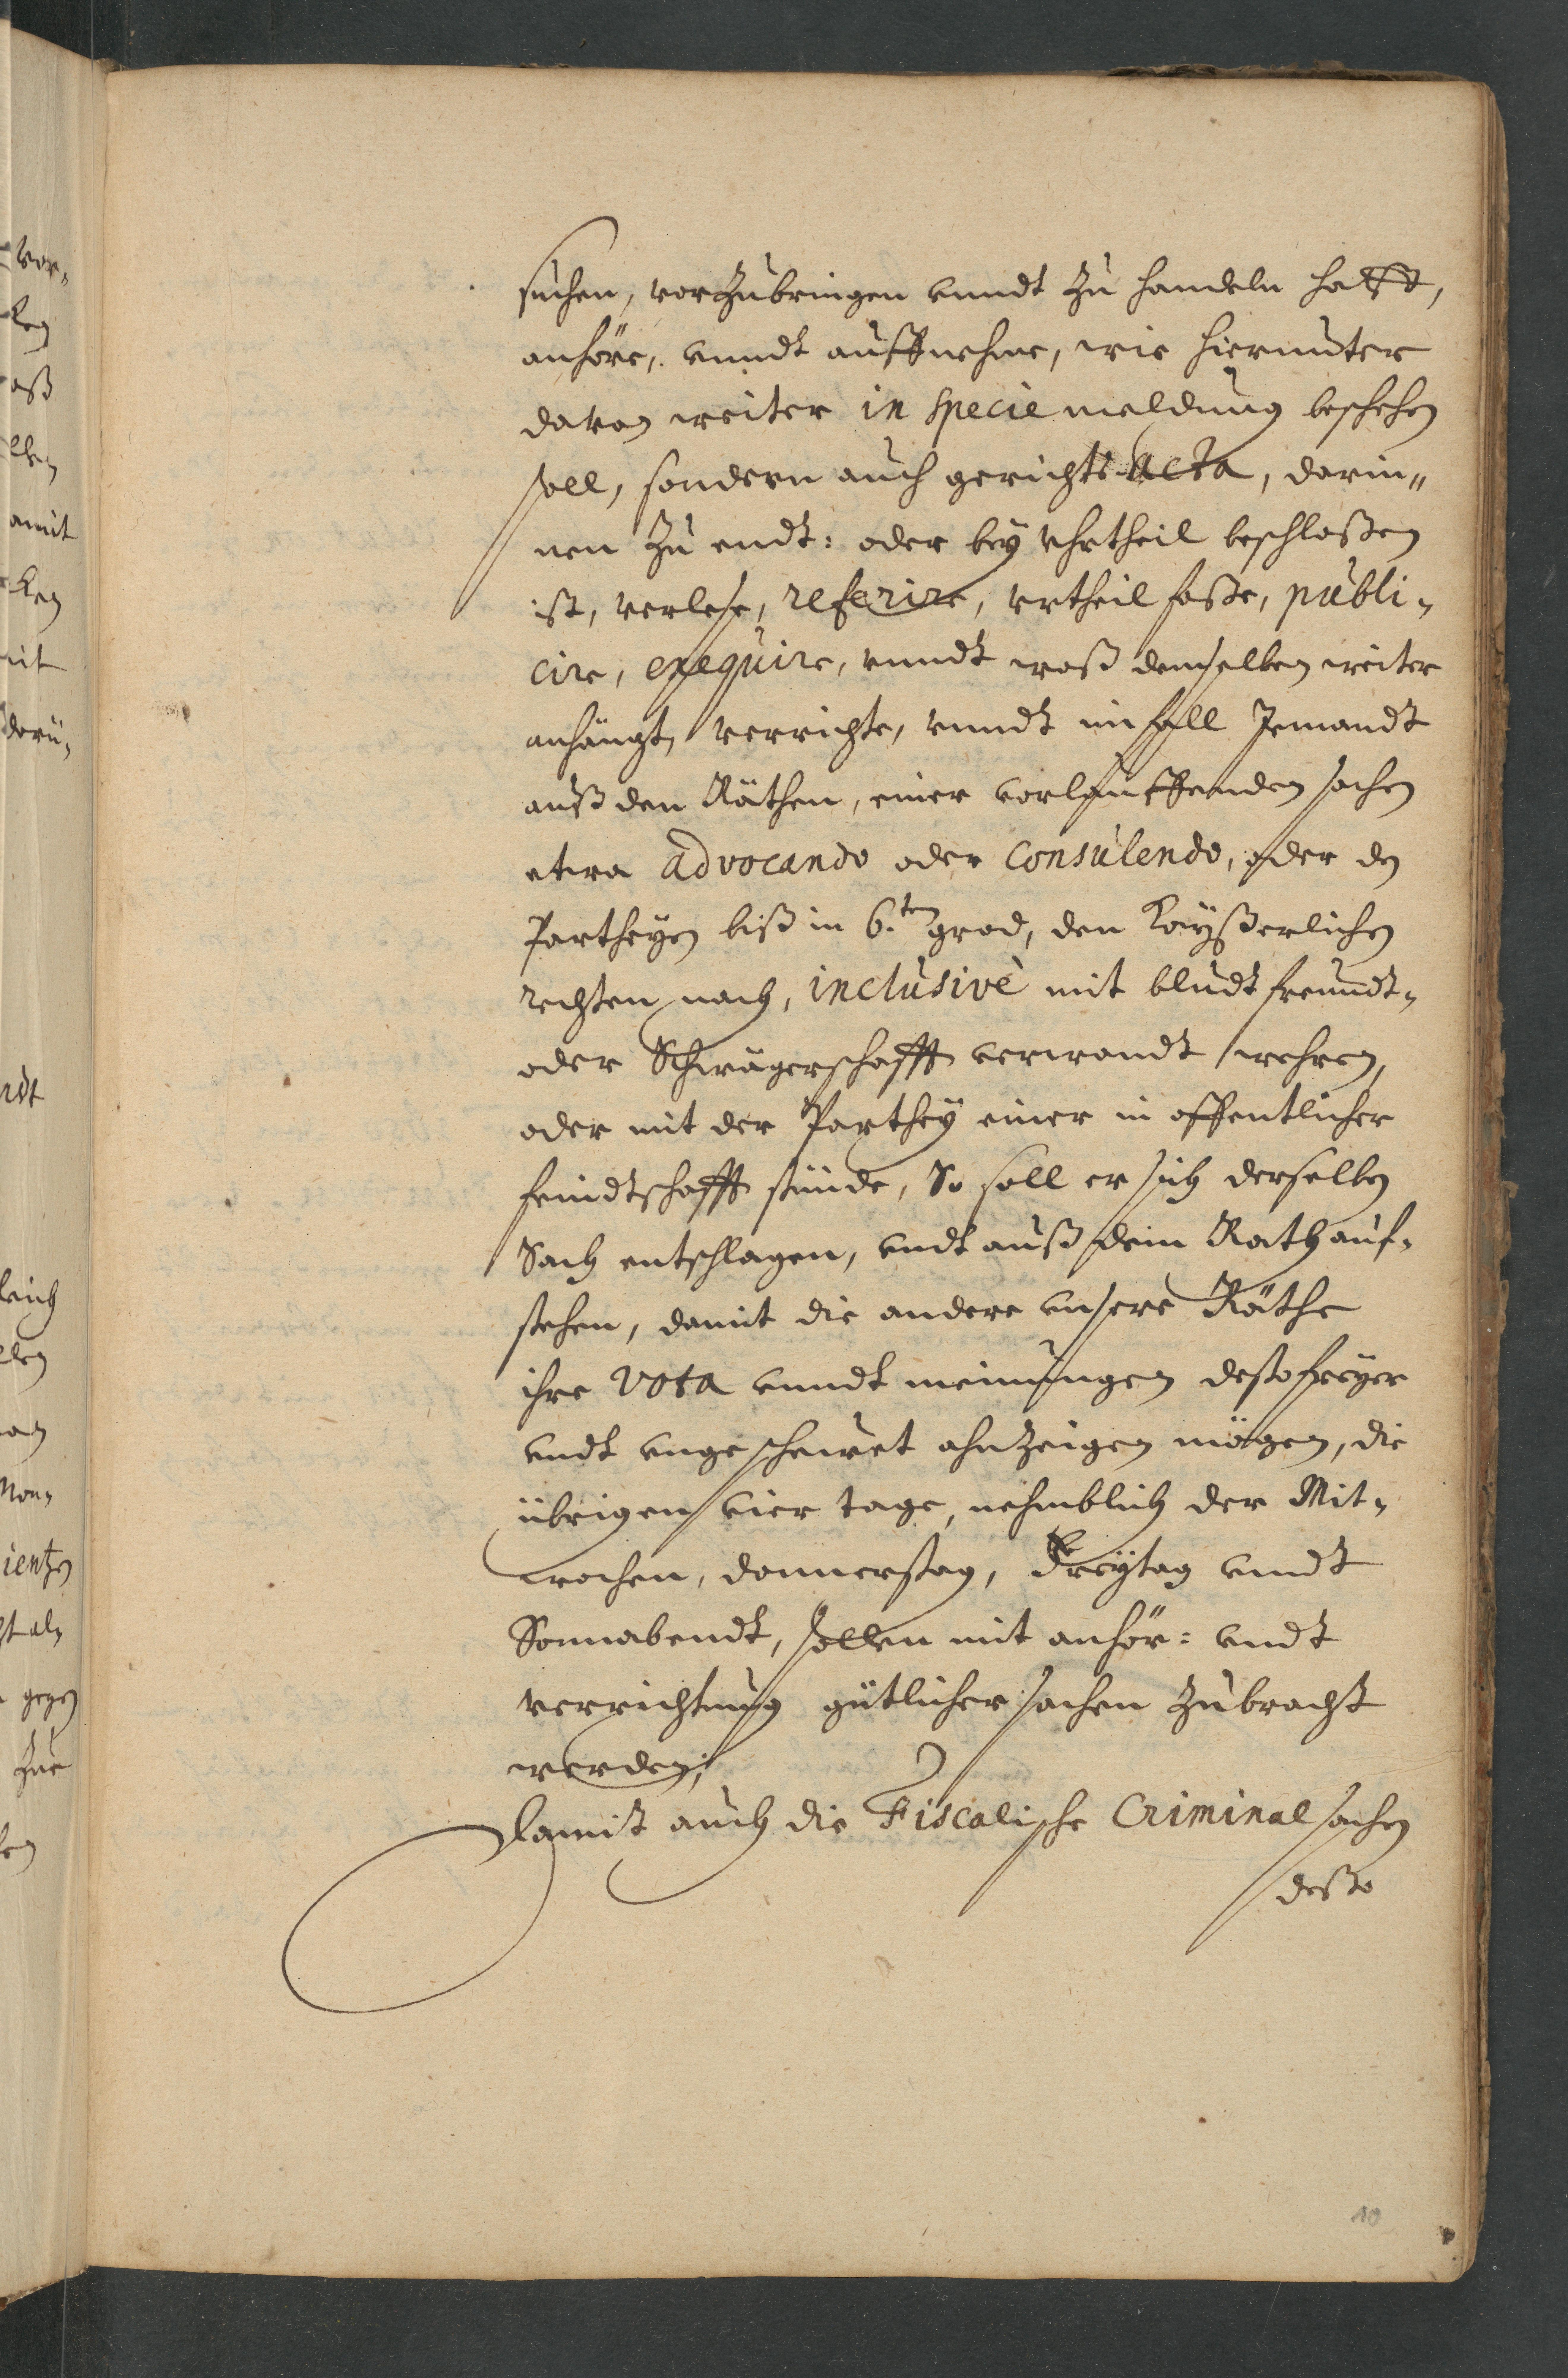 suchen, vorzubringen vnndt zu handeln hatt,
anhöre, vnndt auffnehme, wie hierunter
davon weiter in specie meldung beschehen
soll, sondern auch gerichts Acta, darin„
nen zu endt: oder bey vhrtheil beschloßen
ist, verlese, referire, vrtheil faße, publi„
cire, exequire, vnndt waß demselben weiter
anhängt, verrichte, vnndt im fall Jemandt
auß den Räthen, einer vorlauffenden sachen
etwa advocando oder consulendo, oder den
Partheyen biß in 6.ten grad, den Kayßerlichen
rechten nach, inclusivè mit bludtfreundt„
oder Schwägerschafft verwandt wehren,
oder mit der Parthey einer in offentlicher
feindtschafft stünde, So soll er sich derselben
Sach entschlagen, vndt auß dem Rath auf„
stehen, damit die andere vnsere Räthe
ihre vota vnndt meinungen desto freyer
vndt vngeschewet ahnzeigen mögen, die
übrigen vier tage, nehmblich der Mit„
wochen, donnerstag, Freytag vndt
Sonnabendt, sollen mit anhör: vndt
verrichtung gütlicher sachen zubracht
werden;
Damit auch die Fiscalische Criminal sachen
desto
10